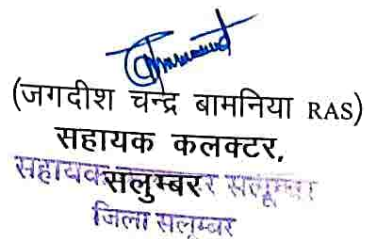 (जगदीश चन्द्र बामनिया RAS)
सहायक कलक्टर,
सलुम्बर
सहायक सलूम्बर
जिला सलूम्बर